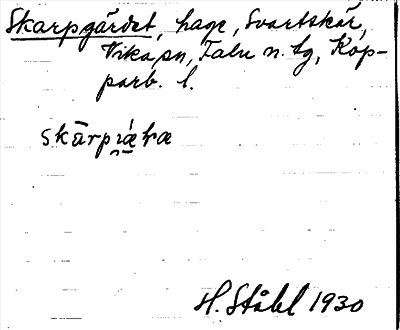 Skarpgärdet, hage, Svartskär,
Vika sn, Falu n. tg, Kop-
parb. l.
skārp
H. Ståhl 1930